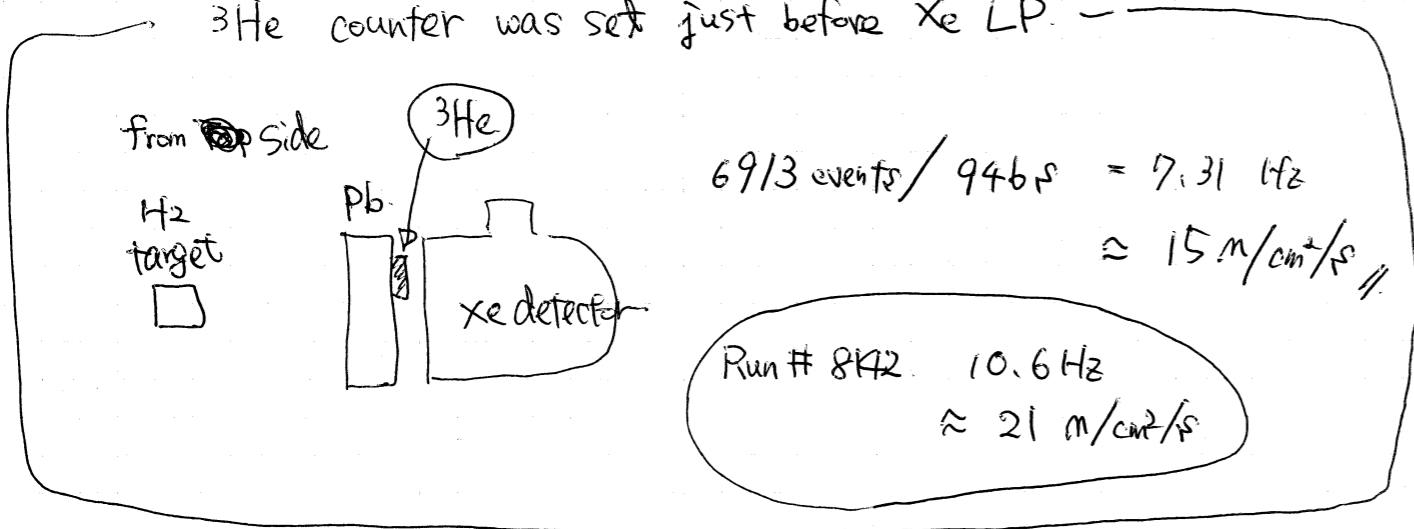 ³He counter was set just before Xe LP.
from side
³He
H₂
target
Pb.
xe detector
6913 events / 946 s = 7.31 Hz
≈ 15 n/cm²/s //.
Run # 8142 10.6 Hz
≈ 21 n/cm²/s